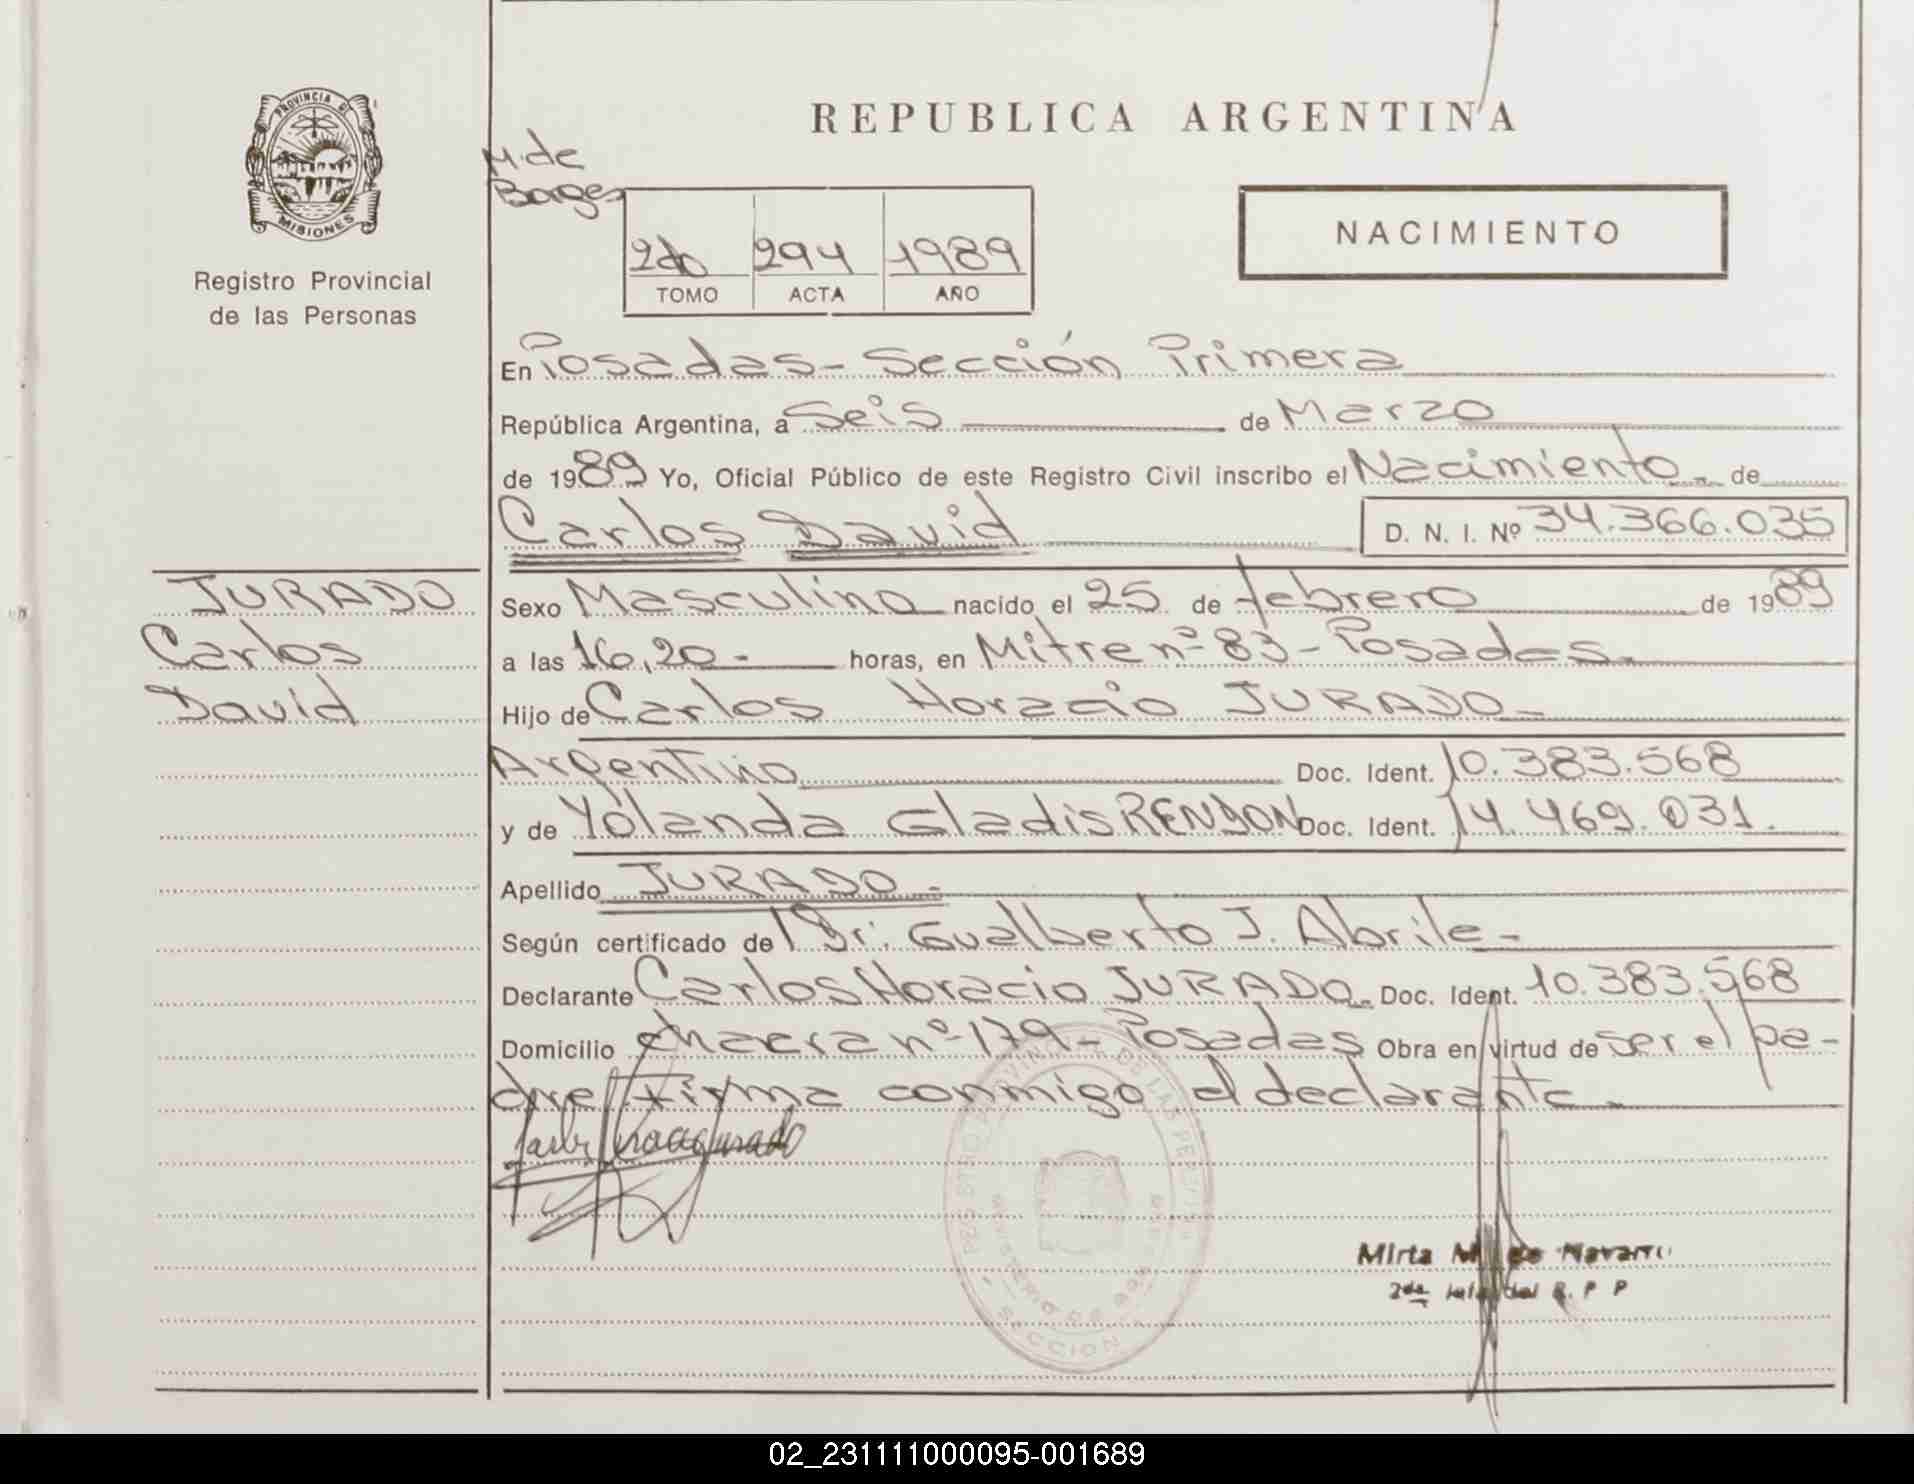 PROVINCIA DE
MISIONES
Registro Provincial
de las Personas
REPUBLICA ARGENTINA
M. de
Borges
NACIMIENTO
2do 294 1989
TOMO ACTA AÑO
En Posadas - Sección Primera
República Argentina, a Seis de Marzo
de 1989 Yo, Oficial Público de este Registro Civil inscribo el Nacimiento - de
Carlos David D. N. I. Nº 34.366.035
JURADO
Carlos
David
Sexo Masculino nacido el 25 de febrero de 1989
a las 16,20 - horas, en Mitre nº 83 - Posadas.
Hijo de Carlos Horacio JURADO -
Argentino Doc. Ident. 10.383.568
y de Yolanda Gladis RENDON Doc. Ident. 14.469.031.
Apellido JURADO -
Según certificado de l Dr. Gualberto J. Abrile -
Declarante Carlos Horacio JURADO - Doc. Ident. 10.383.568
Domicilio chacra nº 179 - Posadas Obra en virtud de ser el pa-
dre Firma conmigo el declarante.
SECCION
Mirta M de Navarro
2da del R. P P
02_231111000095-001689